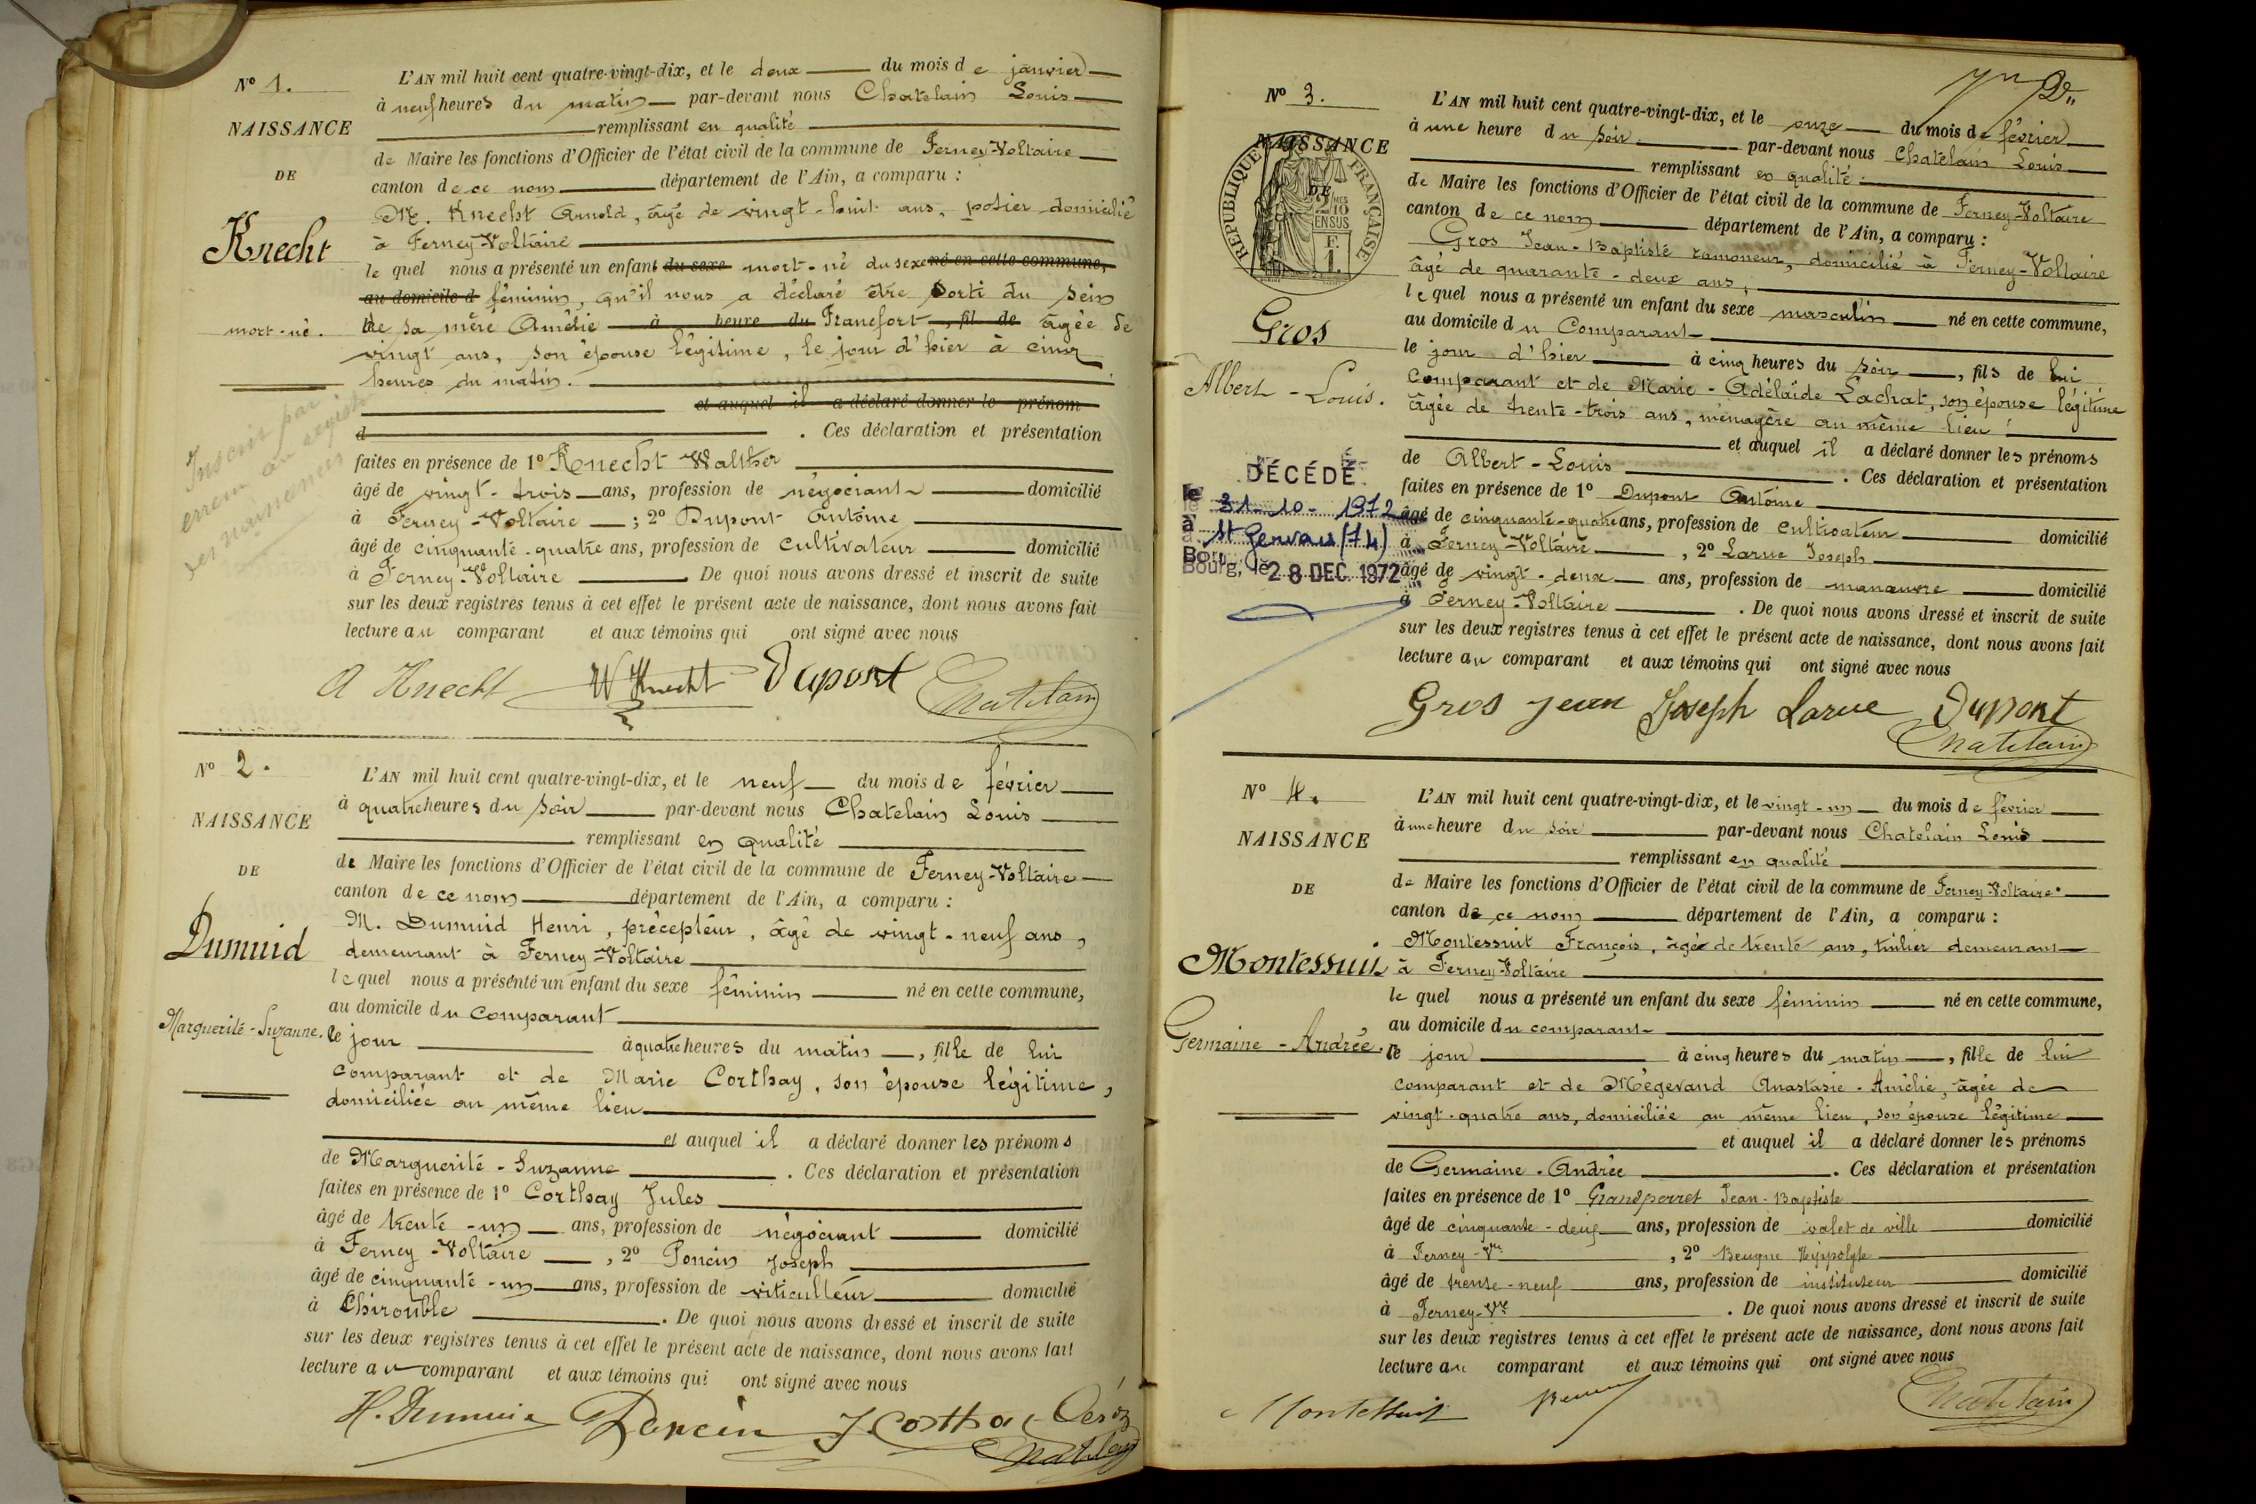 N° 1.
NAISSANCE
DE
Knecht
mort-né.
Inscrit par
erreur au registre
des naissances
L'AN mil huit cent quatre-vingt-dix, et le deux du mois de janvier
à neuf heures du matin par-devant nous Chatelain Louis
remplissant en qualité
de Maire les fonctions d'Officier de l'état civil de la commune de Ferney-Voltaire
canton de ce nom département de l'Ain, a comparu :
M. Knecht Arnold, âgé de vingt-huit ans, potier domicilié
à Ferney-Voltaire
le quel nous a présenté un enfant du sexe mort-né du sexe né en cette commune,
au domicile d féminin, qu'il nous a déclaré être sorti du sein
de sa mère Amélie à heure du Francfort, fil de âgée de
vingt ans, son épouse légitime, le jour d'hier à cinq
heures du matin.
et auquel il a déclaré donner le prénom
d . Ces déclaration et présentation
faites en présence de 1° Knecht Walther
âgé de vingt-trois ans, profession de négociant domicilié
à Ferney-Voltaire ; 2° Dupont Antoine
âgé de cinquante-quatre ans, profession de cultivateur domicilié
à Ferney-Voltaire De quoi nous avons dressé et inscrit de suite
sur les deux registres tenus à cet effet le présent acte de naissance, dont nous avons fait
lecture au comparant et aux témoins qui ont signé avec nous
A Knecht W Knecht Dupont Chatelain
N° 2.
NAISSANCE
DE
Dumuid
Marguerite-Suzanne.
L'AN mil huit cent quatre-vingt-dix, et le neuf du mois de février
à quatre heures du soir par-devant nous Chatelain Louis
remplissant en qualité
de Maire les fonctions d'Officier de l'état civil de la commune de Ferney-Voltaire
canton de ce nom département de l'Ain, a comparu :
M. Dumuid Henri, précepteur, âgé de vingt-neuf ans,
demeurant à Ferney-Voltaire
le quel nous a présenté un enfant du sexe féminin né en cette commune,
au domicile du comparant
le jour à quatre heures du matin, fille de lui
comparant et de Marie Corthay, son épouse légitime,
domiciliée au même lieu
et auquel il a déclaré donner les prénoms
de Marguerite-Suzanne . Ces déclaration et présentation
faites en présence de 1° Corthay Jules
âgé de trente-un ans, profession de négociant domicilié
à Ferney-Voltaire , 2° Poncin Joseph
âgé de cinquante-un ans, profession de viticulteur domicilié
à Chirouble . De quoi nous avons dressé et inscrit de suite
sur les deux registres tenus à cet effet le présent acte de naissance, dont nous avons fait
lecture au comparant et aux témoins qui ont signé avec nous
H. Dumuid Poncin J. Corthay Chatelain
N° 3.
NAISSANCE
DE
RÉPUBLIQUE FRANÇAISE
2/10 EN SUS
F. 1.
Gros
Albert-Louis.
DÉCÉDÉ
le 31-10-1972
à St Gervais (74)
Bourg, le 28 DEC. 1972
L'AN mil huit cent quatre-vingt-dix, et le onze du mois de février
à une heure du soir par-devant nous Chatelain Louis
remplissant en qualité
de Maire les fonctions d'Officier de l'état civil de la commune de Ferney-Voltaire
canton de ce nom département de l'Ain, a comparu :
Gros Jean-Baptiste ramoneur, domicilié à Ferney-Voltaire
âgé de quarante-deux ans,
le quel nous a présenté un enfant du sexe masculin né en cette commune,
au domicile du Comparant
le jour d'hier à cinq heures du soir, fils de lui
comparant et de Marie-Adélaïde Lachat, son épouse légitime
âgée de trente-trois ans, ménagère au même lieu
et auquel il a déclaré donner les prénoms
de Albert-Louis . Ces déclaration et présentation
faites en présence de 1° Dupont Antoine
âgé de cinquante-quatre ans, profession de cultivateur domicilié
à Ferney-Voltaire , 2° Larue Joseph
âgé de vingt-deux ans, profession de manœuvre domicilié
à Ferney-Voltaire . De quoi nous avons dressé et inscrit de suite
sur les deux registres tenus à cet effet le présent acte de naissance, dont nous avons fait
lecture au comparant et aux témoins qui ont signé avec nous
Gros Jean Joseph Larue Dupont
Chatelain
N° 4.
NAISSANCE
DE
Montessuit
Germaine-Andrée.
L'AN mil huit cent quatre-vingt-dix, et le vingt-un du mois de février
à une heure du soir par-devant nous Chatelain Louis
remplissant en qualité
de Maire les fonctions d'Officier de l'état civil de la commune de Ferney-Voltaire
canton de ce nom département de l'Ain, a comparu :
Montessuit François, âgé de trente ans, tuilier demeurant
à Ferney-Voltaire
le quel nous a présenté un enfant du sexe féminin né en cette commune,
au domicile du comparant
le jour à cinq heures du matin, fille de lui
comparant et de Mégevand Anastasie-Amélie, âgée de
vingt-quatre ans, domiciliée au même lieu, son épouse légitime
et auquel il a déclaré donner les prénoms
de Germaine-Andrée . Ces déclaration et présentation
faites en présence de 1° Grandperret Jean-Baptiste
âgé de cinquante-deux ans, profession de valet de ville domicilié
à Ferney-Vre , 2° Beugne Hyppolyte
âgé de trente-neuf ans, profession de instituteur domicilié
à Ferney-Vre . De quoi nous avons dressé et inscrit de suite
sur les deux registres tenus à cet effet le présent acte de naissance, dont nous avons fait
lecture au comparant et aux témoins qui ont signé avec nous
Montessuit Chatelain